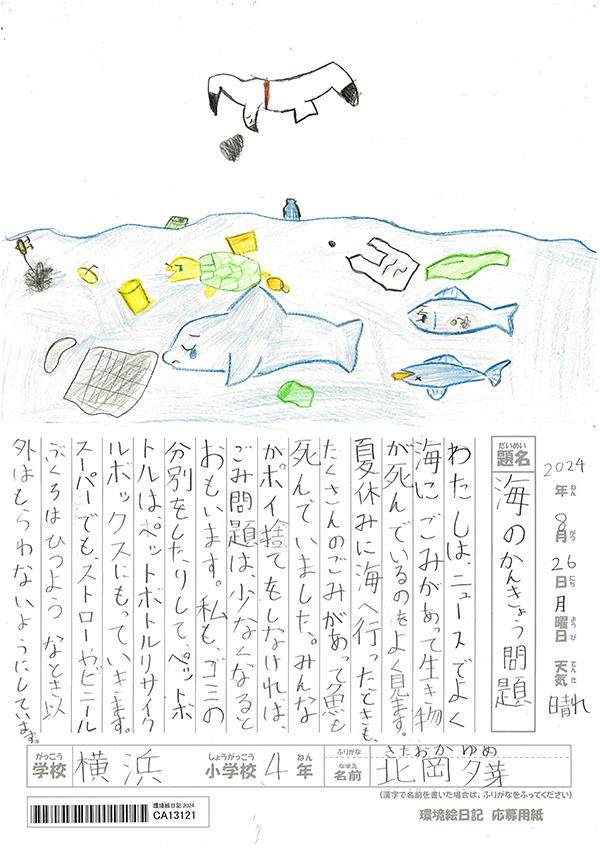 2024年8月26日月曜日 天気晴れ
ねん がつ にち ようび てんき
だいめい
題名 海のかんきょう問題
わたしは、ニュースでよく
海にごみがあって生き物
が死んでいるのをよく見ます。
夏休みに海へ行ったときも、
たくさんのごみがあって魚も
死んでいました。みんな
がポイ捨てをしなければ、
ごみ問題は、少なくなると
おもいます。私も、ゴミの
分別をしたりして、ペットボ
トルは、ペットボトルリサイク
ルボックスにもっていきます。
スーパーでも、ストローやビニール
ぶくろはひつような とき以
外はもらわないようにしています。
がっこう しょうがっこう ねん ふりがな きたおか ゆめ
学校 横浜 小学校 4年 なまえ 名前 北岡夕芽
(漢字で名前を書いた場合は、ふりがなをふってください)
環境絵日記2024
CA13121
環境絵日記 応募用紙